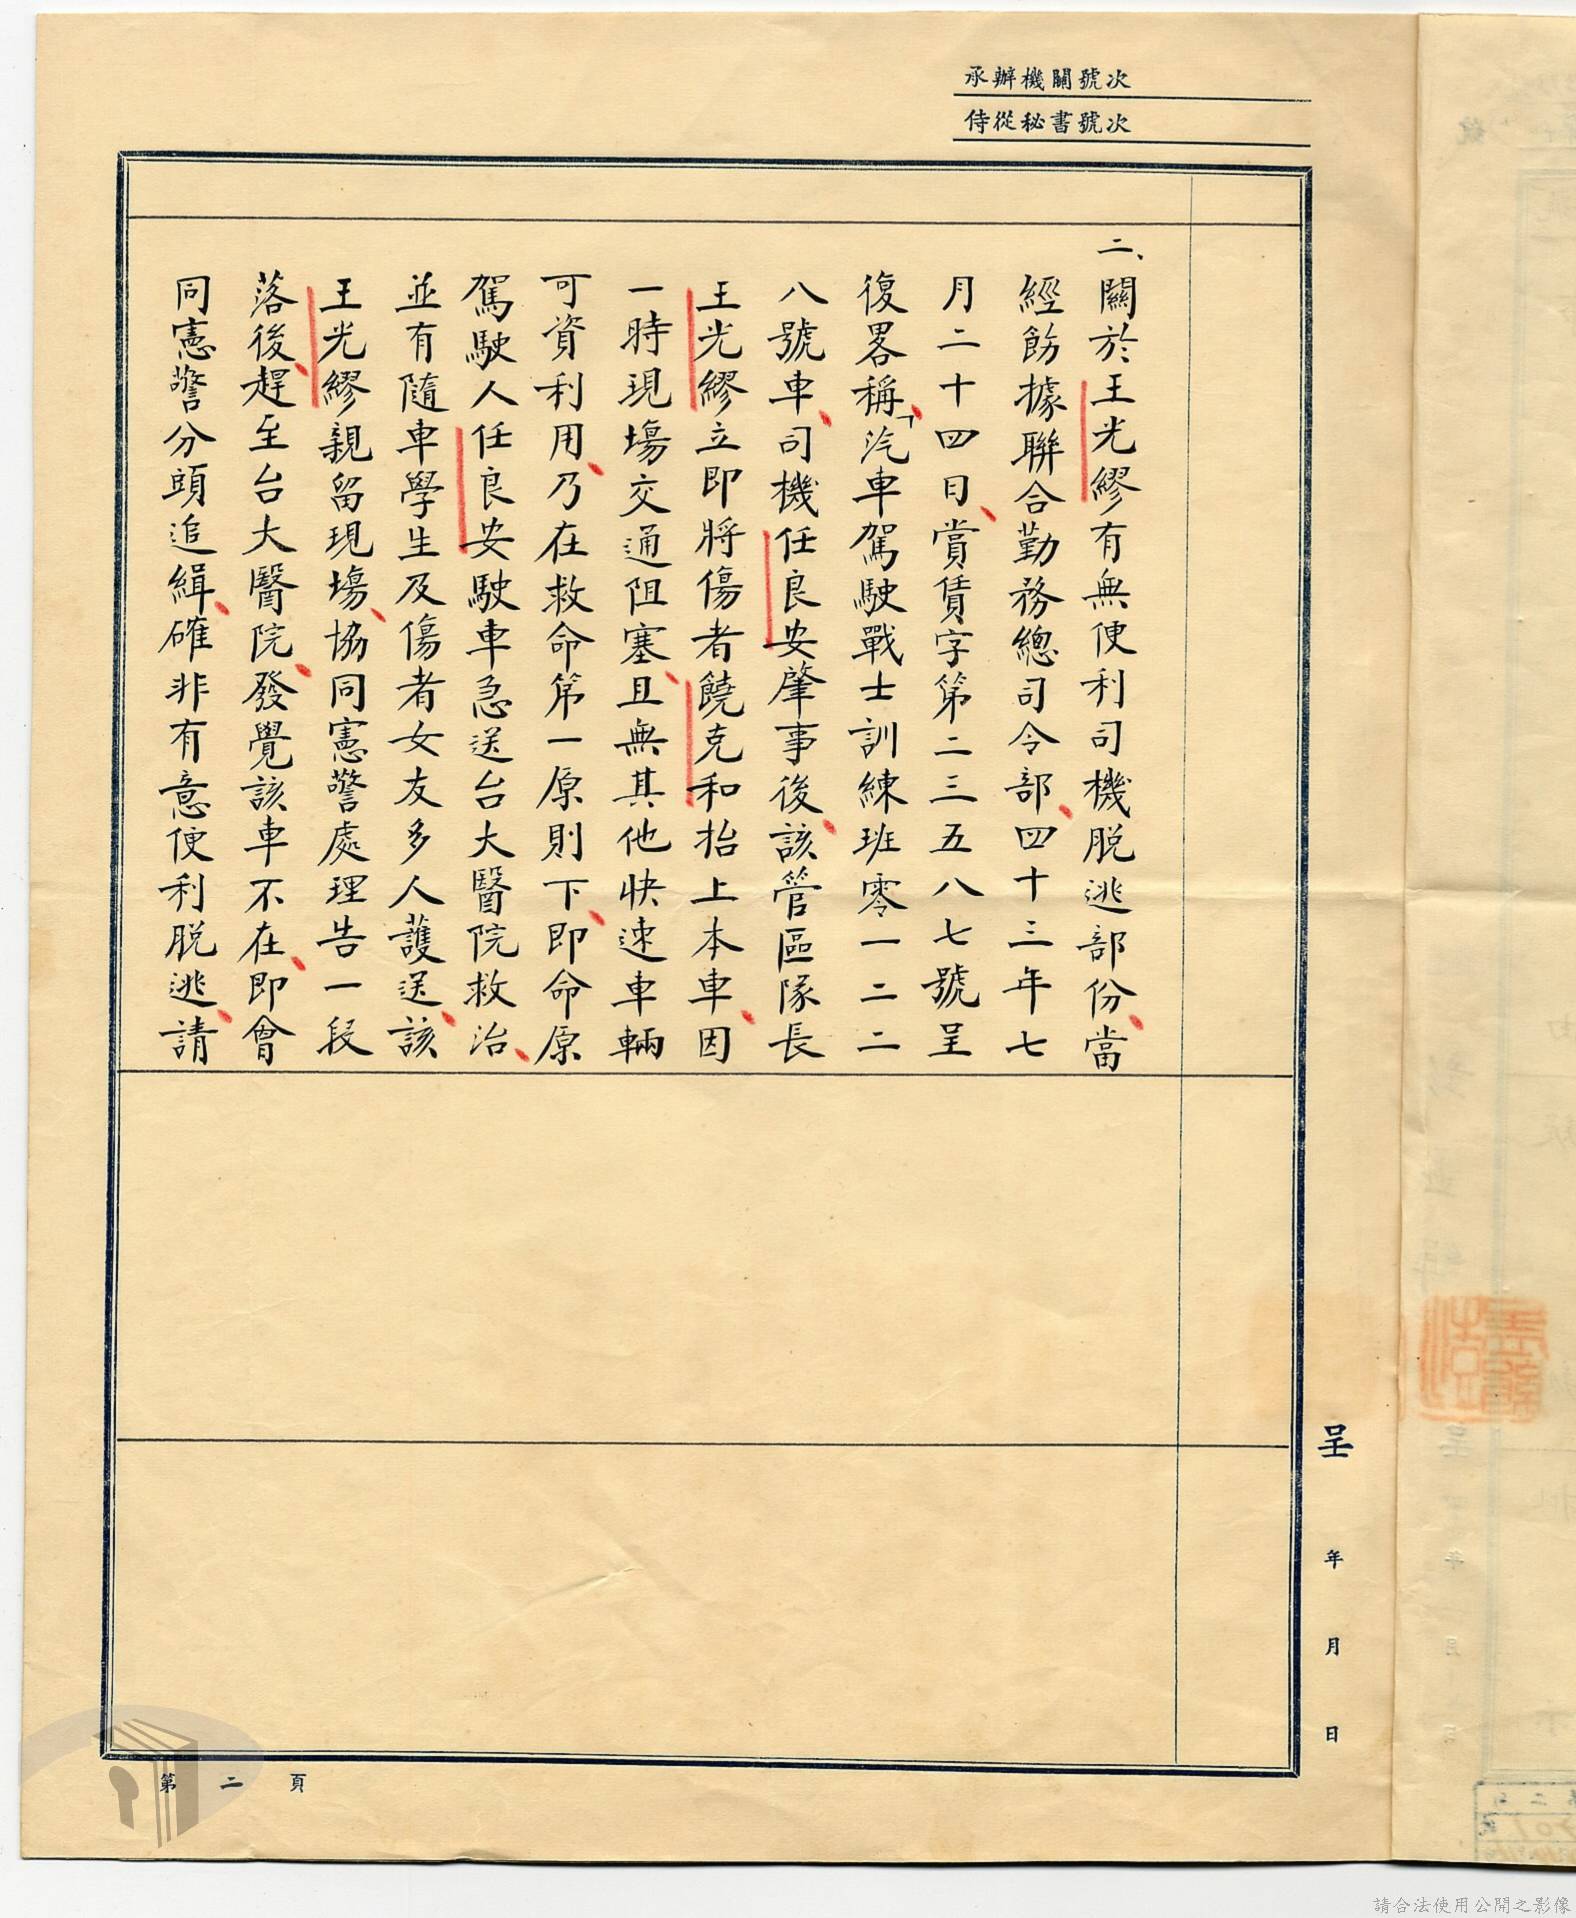 承辦機關號次
侍從秘書號次
二、關於王光繆有無便利司機脫逃部份、當
經飭據聯合勤務總司令部、四十三年七
月二十四日、賞賃字第二三五八七號呈
復畧稱、「汽車駕駛戰士訓練班零一二二
八號車、司機任良安肇事後、該管區隊長
王光繆立即將傷者饒克和抬上本車、因
一時現場交通阻塞、且無其他快速車輛
可資利用、乃在救命第一原則下、即命原
駕駛人任良安駛車急送台大醫院救治、
並有隨車學生及傷者女友多人護送、該
王光繆親留現場、協同憲警處理告一段
落後、趕至台大醫院、發覺該車不在、即會
同憲警分頭追緝、確非有意便利脫逃、請
呈 年 月 日
第二頁
請合法使用公開之影像